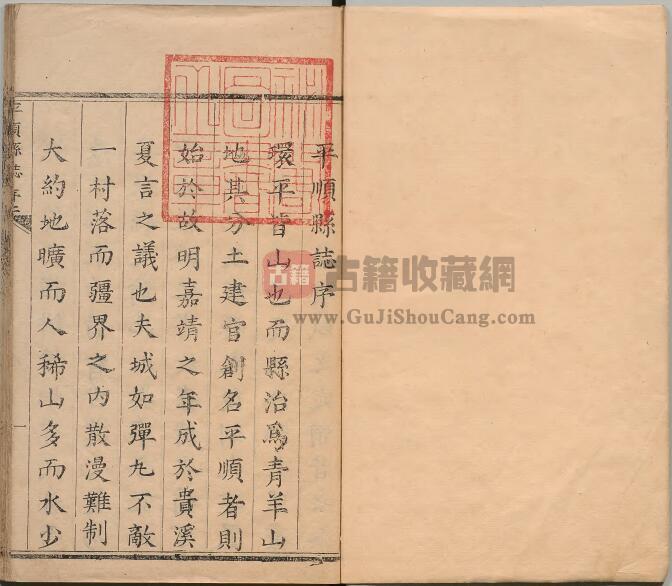 平順縣誌序
環平皆山也而縣治爲青羊山
地其分土建官創名平順者則
始於故明嘉靖之年成於貴溪
夏言之議也夫城如彈丸不敵
一村落而疆界之内散漫難制
大約地曠而人稀山多而水少
平順縣誌
一
古籍
古籍收藏網
www.GuJiShouCang.com